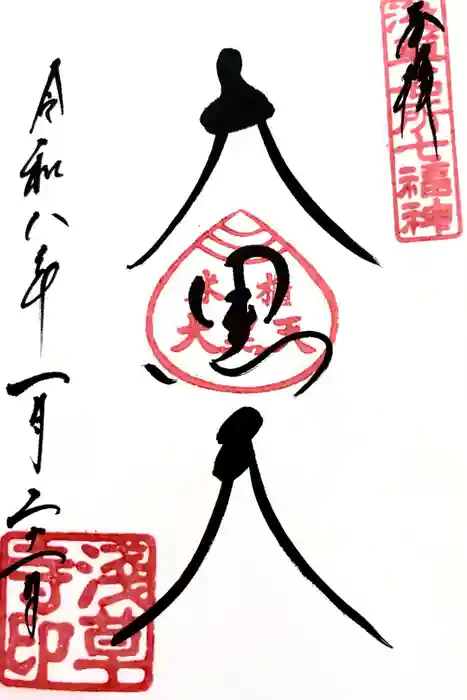 奉拝
浅草名所七福神
大黒天
米櫃
大黒天
令和八年一月二十一日
淺草寺印